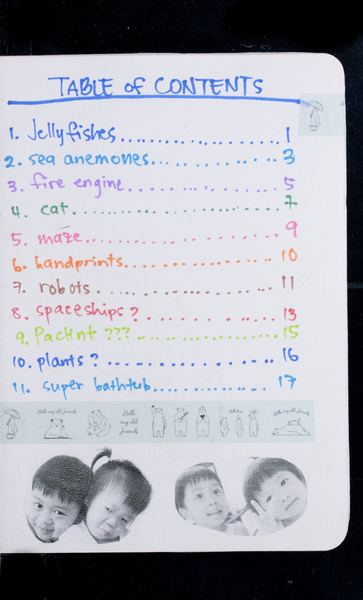 TABLE of CONTENTS
1. Jellyfishes.......................1
2. sea anemones..................3
3. fire engine.....................5
4. cat..............................7
5. maze...........................9
6. handprints.....................10
7. robots..........................11
8. spaceships?...................13
9. PacHnt ???....................15
10. plants?.......................16
11. super bathtub................17
Hello my old friends
Hello my old friends
Hello my old friends